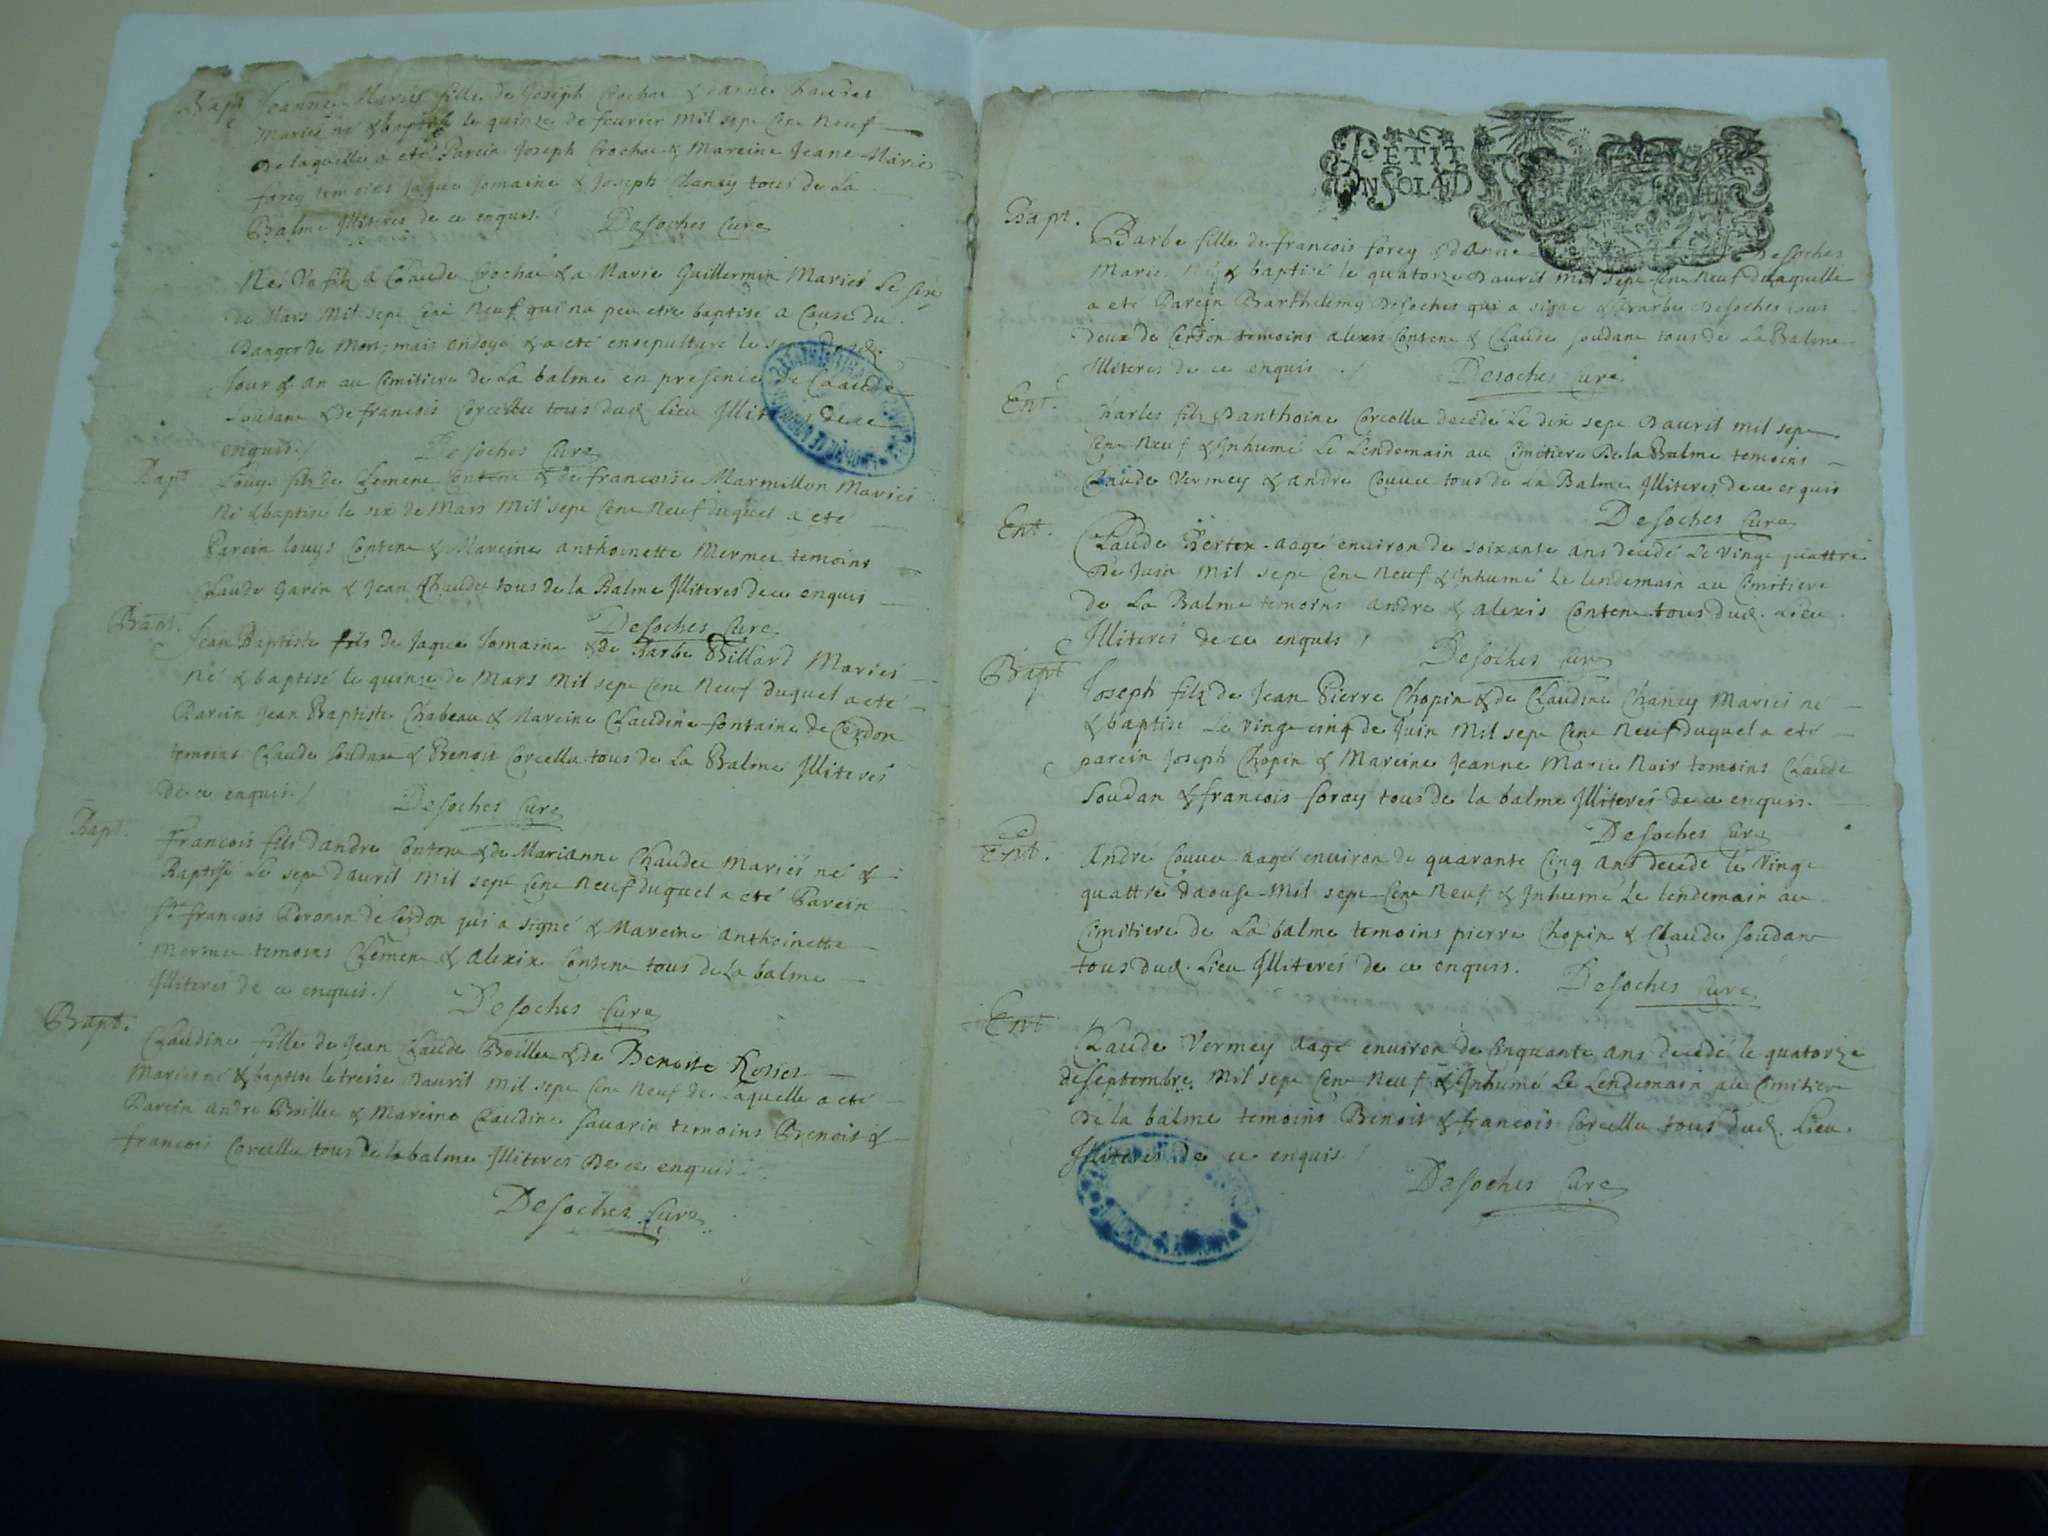 Bapt Joanne Marie fille de Joseph Crochat & danne Chaudet
Mariés né & baptisé le quinze de feurier mil sept Cent Neuf
de laquelle a eté Parein Joseph Crochat & Mareine Jeane Marie
forey temoins Jaque Jomaine & Joseph Chaney tous de La
Balme Illiterés de ce enquis. / Desoches Curé
Né Vn filz a Claude Crochat & a Marie Guillermin Mariés Le
de Mars mil sept Cent Neuf qui na peu etre baptisé a Cause du
Danger de Mort mais ondoyé & a eté ensepulturé le
Jour & an au Cimitiere de La balme en presence de Claude
Soudan & de francois Corcellu tous dud. Lieu Illiterés de ce
enquis. / Desoches Curé
Bapt Louys filz de Clement Contene & de francoise Marmillon Mariés
né & baptisé le six de Mars mil sept Cent Neuf duquel a eté
Parein louys Contene & Mareine anthoinette Mermet temoins
Claude Garin & Jean Chaudet tous de la Balme Illiterés de ce enquis
Desoches Curé
Bapt. Jean Baptiste fils de Jaque Jomaine & de Barbe Billard Mariés
né & baptisé le quinze de Mars mil sept Cent Neuf duquel a eté
Parein Jean Baptiste Chabeau & Mareine Claudine fontaine de Cerdon
temoins Claude Soudan & Benoit Corcellu tous de La Balme Illiterés
de ce enquis. / Desoches Curé
Bapt. Francois fils dandre Contene & de Marianne Chaudet Mariés né &
Baptisé Le sept dauril mil sept Cent Neuf duquel a eté Parein
Sr francois Peronin de Cerdon qui a signé & Mareine anthoinette
Mermet temoins Clement & alexix Contene tous de La balme
Illiterés de ce enquis. / Desoches Curé
Bapt. Claudine fille de Jean Claude Boillet & de Benoite Rosset
Mariés né & baptisé le treise Dauril mil sept Cent Neuf de Laquelle a eté
Parein andre Boillet & Mareine Claudine Sauarin temoins Benoit &
francois Corcellu tous de la balme Illiterés de ce enquis.
Desoches Curé
PETIT
EN SOL AED
Bapt. Barbe fille de francois forey & danne Desoches
Mariés Né & baptisé le quatorze Dauril mil sept Cent Neuf de laquelle
a eté Parein Barthelemy Desoches qui a signé & Barbe Desoches tous
deux de Cerdon temoins alexis Contene & Claude Soudan tous de La Balme
Illiterés de ce enquis . / Desoches Curé
Ent. Charles filz Danthoine Corcellu decedé Le dix sept Dauril mil sept
Cent Neuf & Inhumé Le Lendemain au Cimitiere De la Balme temoins
Claude Vermey & andre Couuet tous de La Balme Illiterés de ce enquis
Desoches Curé
Ent. Claude aagé enuiron de soixante ans decedé Le vingt quattre
De Juin mil sept Cent Neuf & Inhumé Le lendemain au Cimitiere
de La Balme temoins andre & alexis Contene tous dud. Lieu
Illiterés de ce enquis / Desoches Curé
Bapt Joseph filz de Jean Pierre Chopin & de Claudine Chaney Mariés né
& baptisé Le vingt cinq de Juin mil sept Cent Neuf duquel a eté
parein Joseph Chopin & Mareine Jeanne Marie Noir temoins Claude
Soudan & francois foray tous de la balme Illiterés de ce enquis.
Desoches Curé
Ent. André Couuet aagé enuiron de quarante Cinq ans decedé le vingt
quattre daoust mil sept Cent Neuf & Inhumé Le lendemain au
Cimitiere de La balme temoins pierre Chopin & Claude Soudan
tous dud. Lieu Illiterés de ce enquis. Desoches Curé
Ent Claude Vermey aagé enuiron de Cinquante ans decedé le quatorze
de Septembre mil sept Cent Neuf & Inhumé Le Lendemain au Cimitiere
De la balme temoins Benoit & francois Corcellu tous dud. Lieu
Illiterés de ce enquis / Desoches Curé